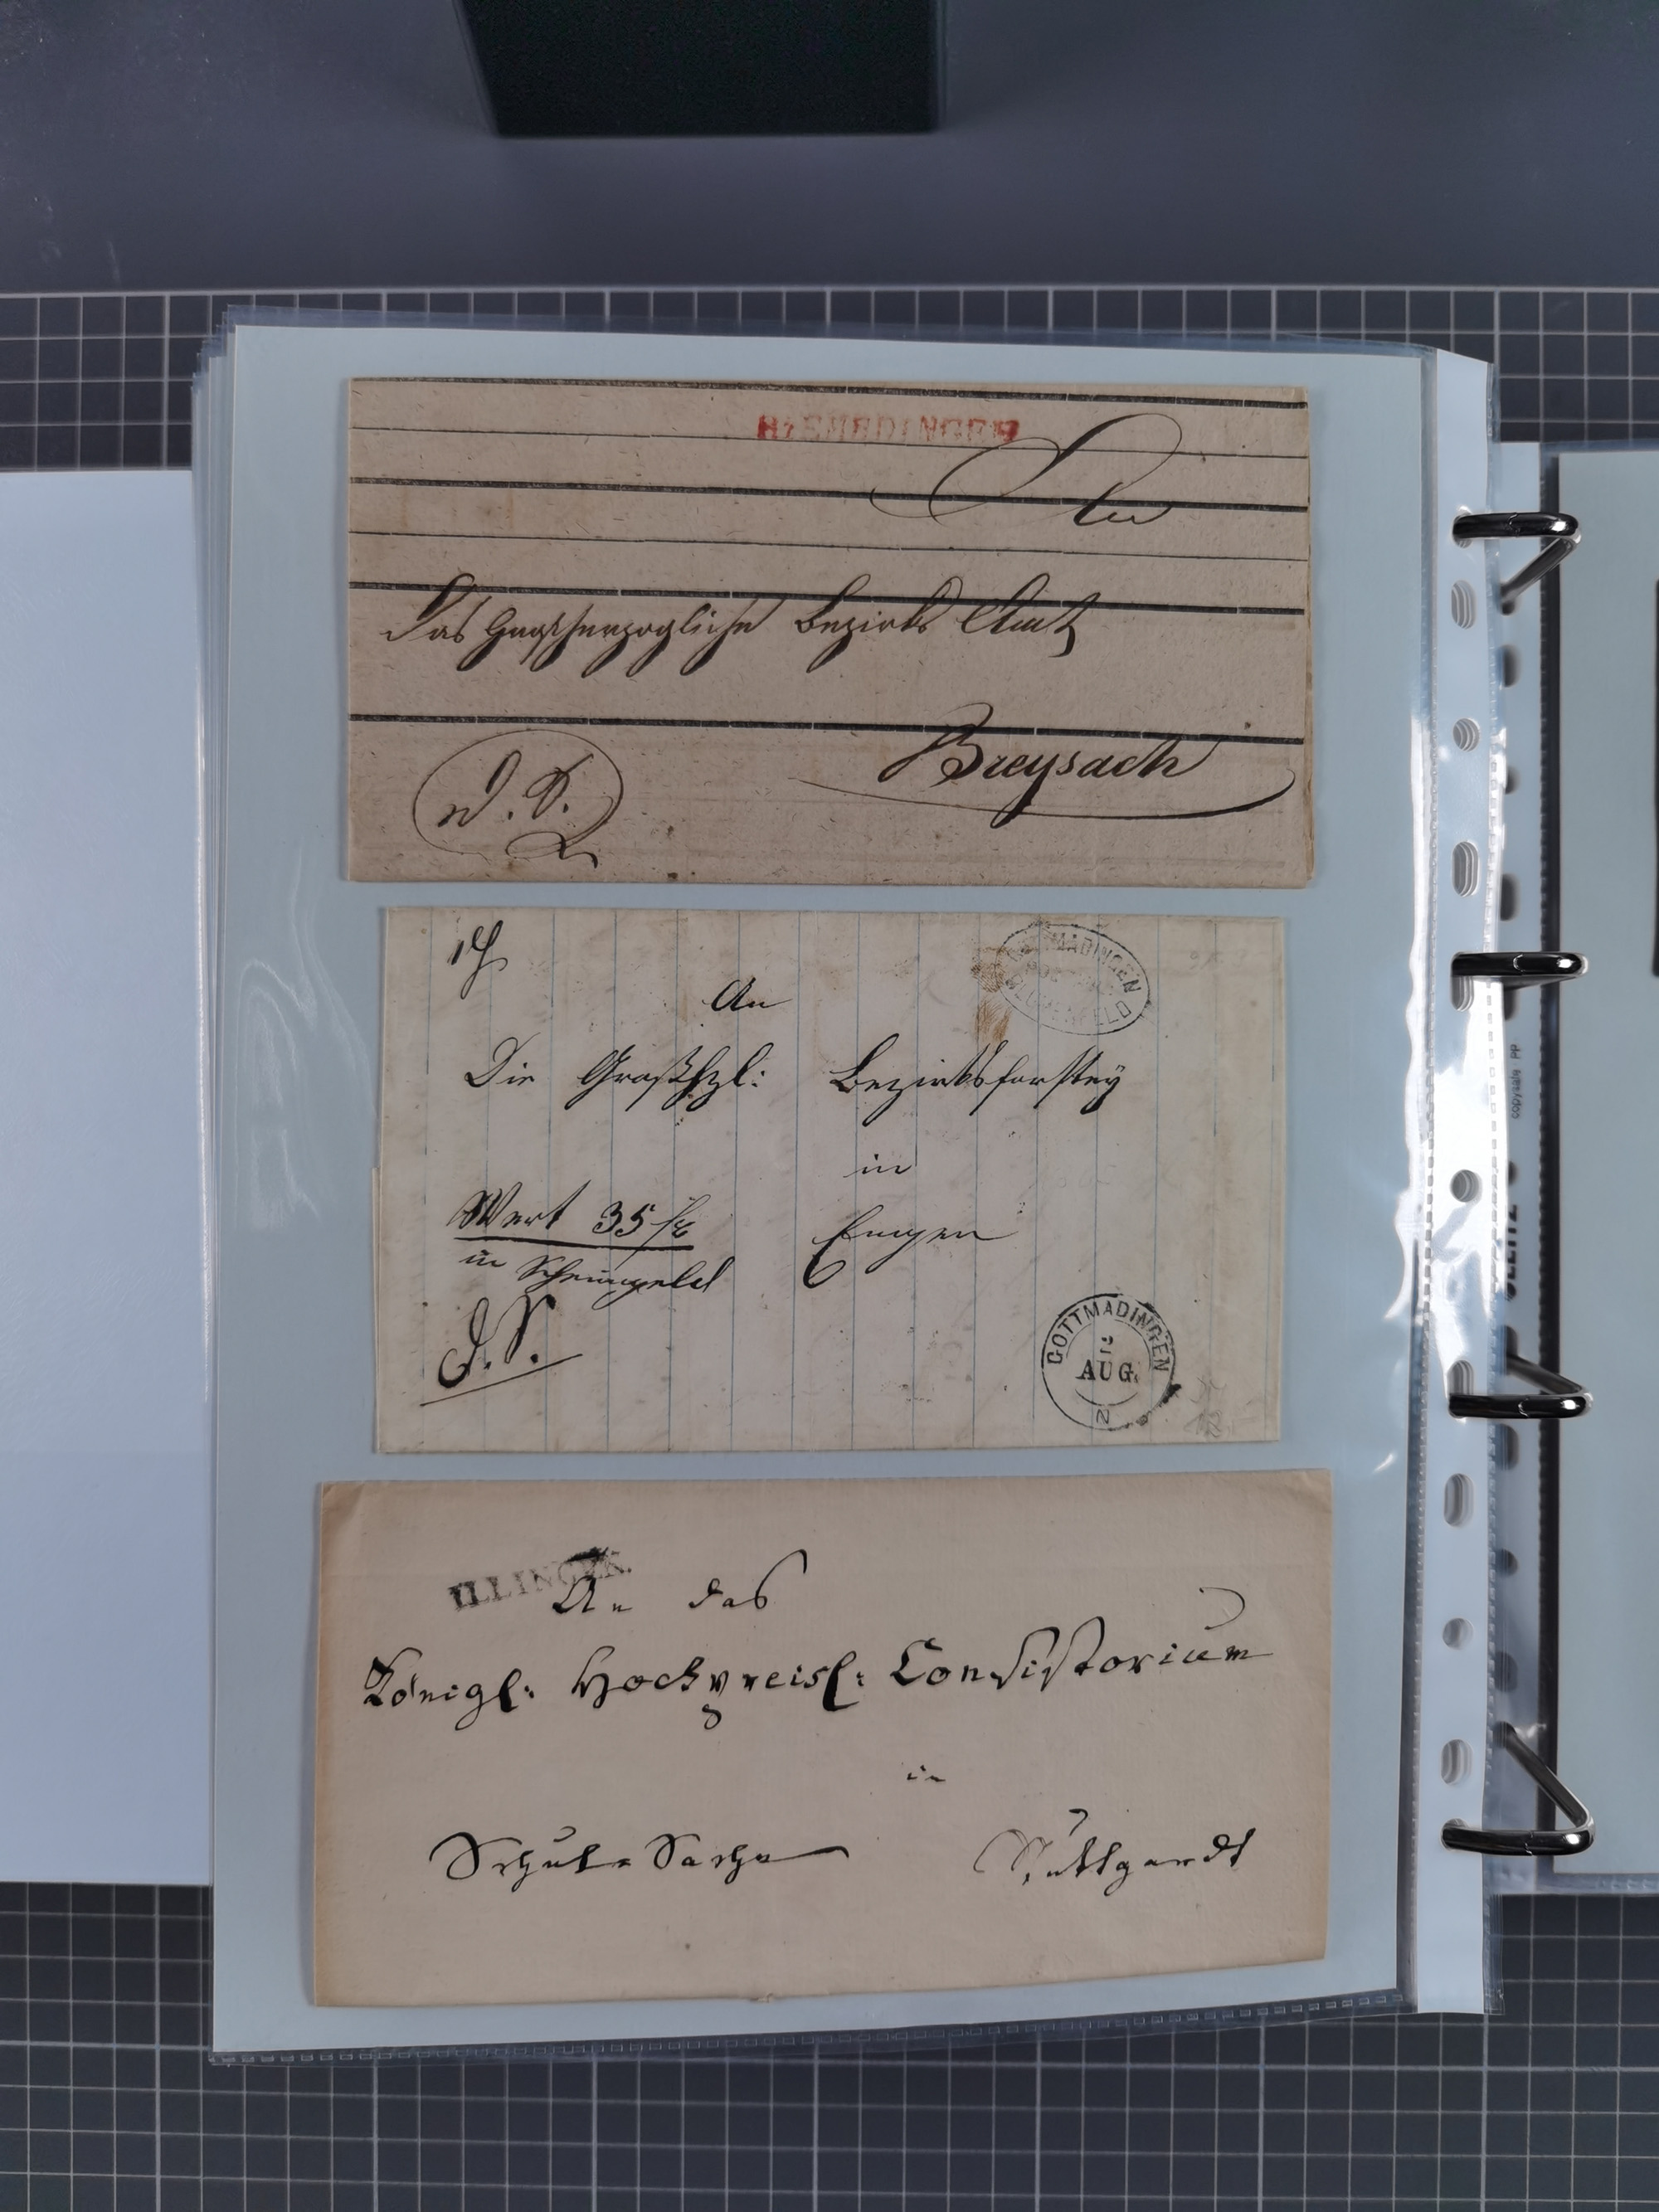 R.EMEDINGEN
An
das Großherzogliche Bezirks Amt
Breysach
D. S.
GOTTMADINGEN
BLUMENFELD
An
Die Großhzl: Bezirksforstey
in
Wert 35 f
Engen
in Scheingeld
D. S.
GOTTMADINGEN
2
AUG.
ILLINGEN.
An das
Königl: Hochpreisl: Consistorium
in
Schul-Sache Stuttgardt
copysafe PP
LEITZ